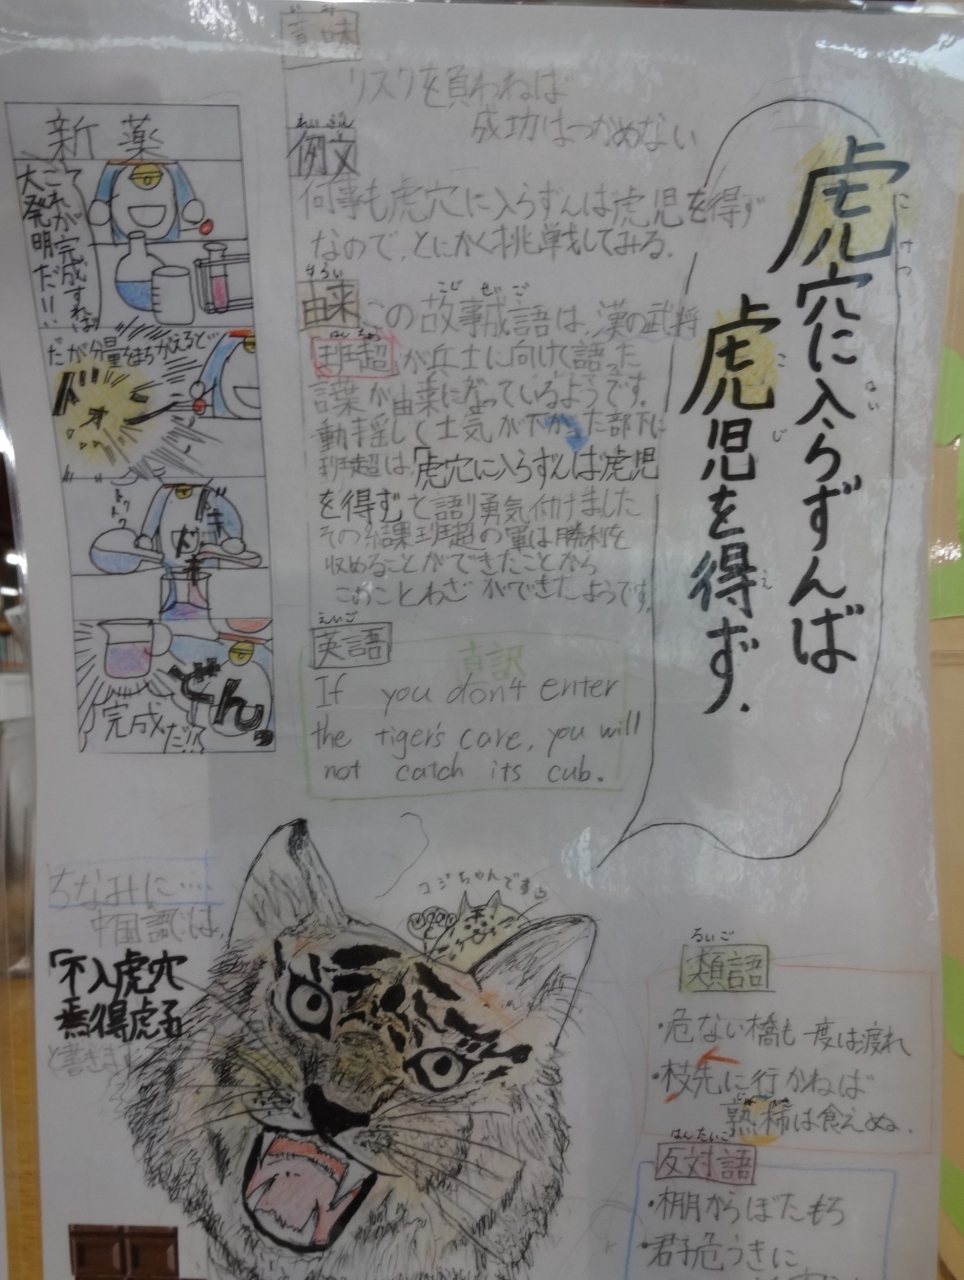 虎穴に入らずんば
虎児を得ず.
にけつ
はい
こじ
え
いみ
意味
リスクを負わねば
成功はつかめない
れいぶん
例文
何事も虎穴に入らずんば虎児を得ず
なので、とにかく挑戦してみる.
由来
こじせいご
この故事成語は、漢の武将
はんちょう
班超が兵士に向けて語った
言葉が由来になっているようです.
動揺して士気が下がった部下に
班超は、「虎穴に入らずんば虎児
を得ず」と語り勇気付けました
その結果班超の軍は勝利を
収めることができたことから
このことわざができたようです.
えいご
英語
直訳
If you don't enter
the tiger's care, you will
not catch its cub.
新薬
これが完成すれば
大発明だ!!
だが分量をまちがえると…
トクトク
ドキドキ
どんっ
完成だ!?
ちなみに….
中国語では、
「不入虎穴
焉得虎子」
と書きます
コジちゃんです
るいご
類語
・危ない橋も一度は渡れ
・枝先に行かねば
熟柿は食えぬ.
はんたいご
反対語
・棚からぼたもち
・君子危うきに